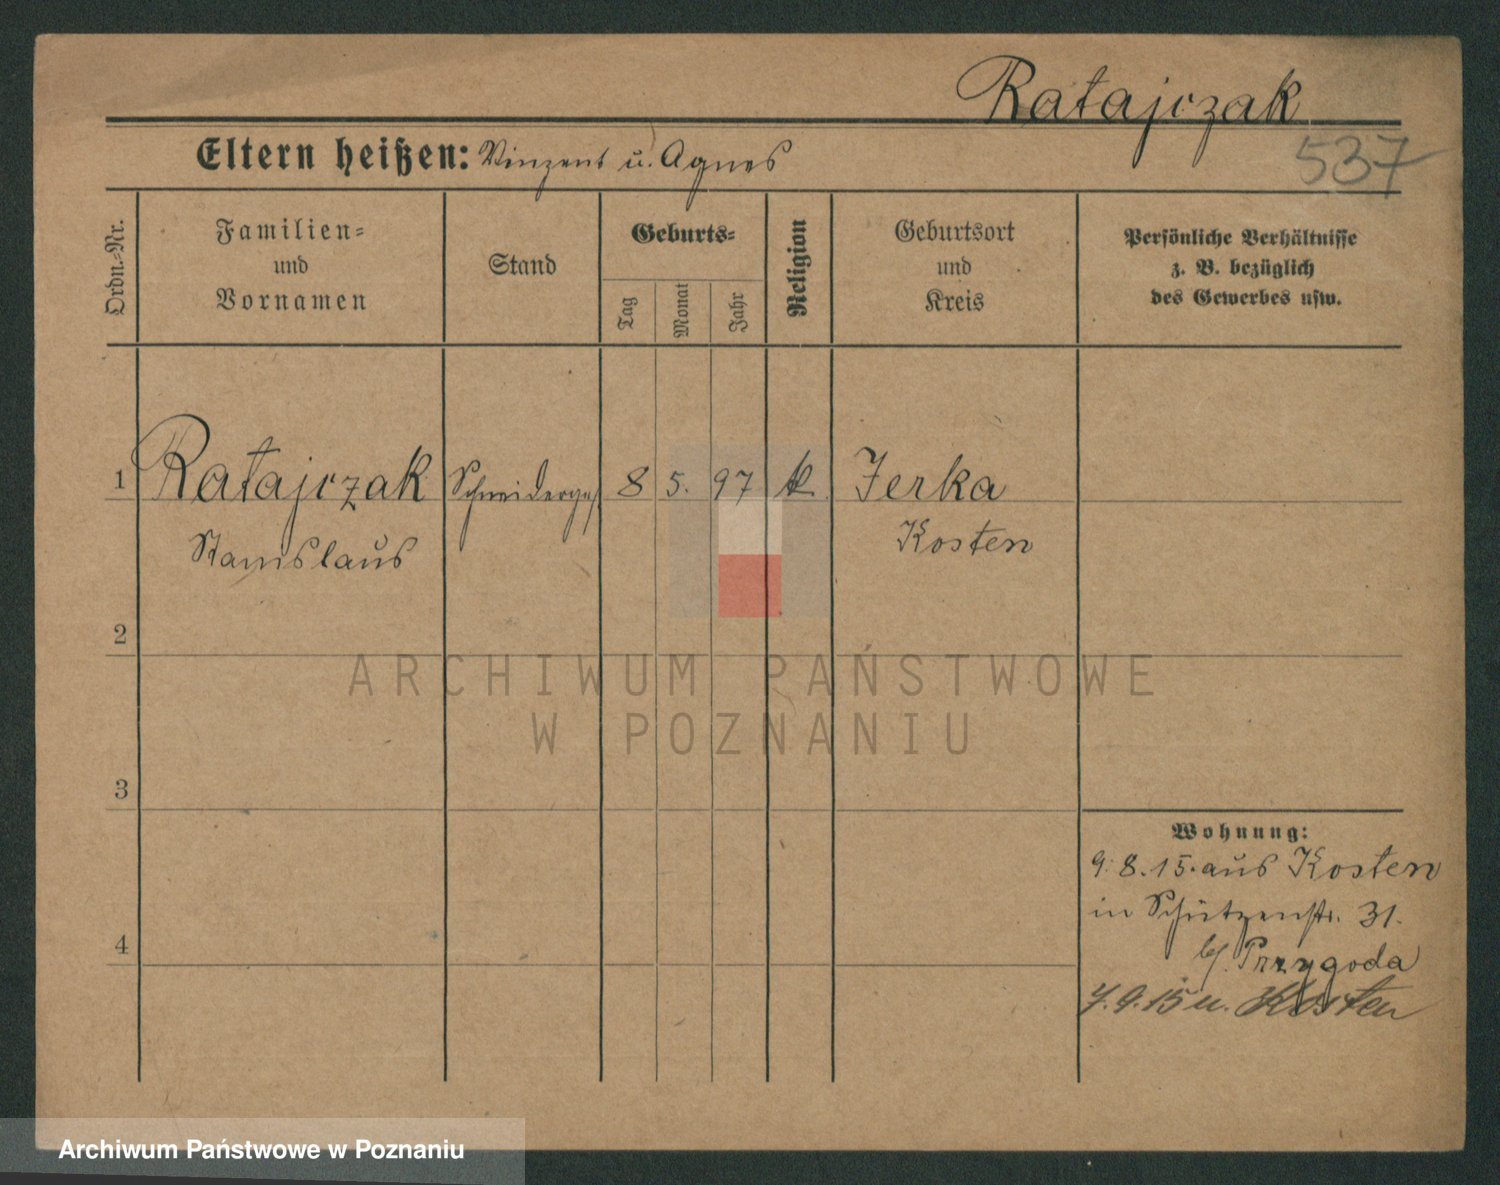 Ratajczak
537
Eltern heißen: Vinzent u. Agnes
Ordn.-Nr.
Familien-
und
Vornamen
Stand
Geburts-
Tag
Monat
Jahr
Religion
Geburtsort
und
Kreis
Persönliche Verhältnisse
z. B. bezüglich
des Gewerbes usw.
1 Ratajczak Schneiderges. 8 5. 97 k. Jerka
Stanislaus Kosten
2
ARCHIWUM PAŃSTWOWE
W POZNANIU
3
Wohnung:
9. 8. 15. aus Kosten
in Schützenstr. 31.
4
b/. Przygoda
7. 9. 15 n. Kosten
Archiwum Państwowe w Poznaniu